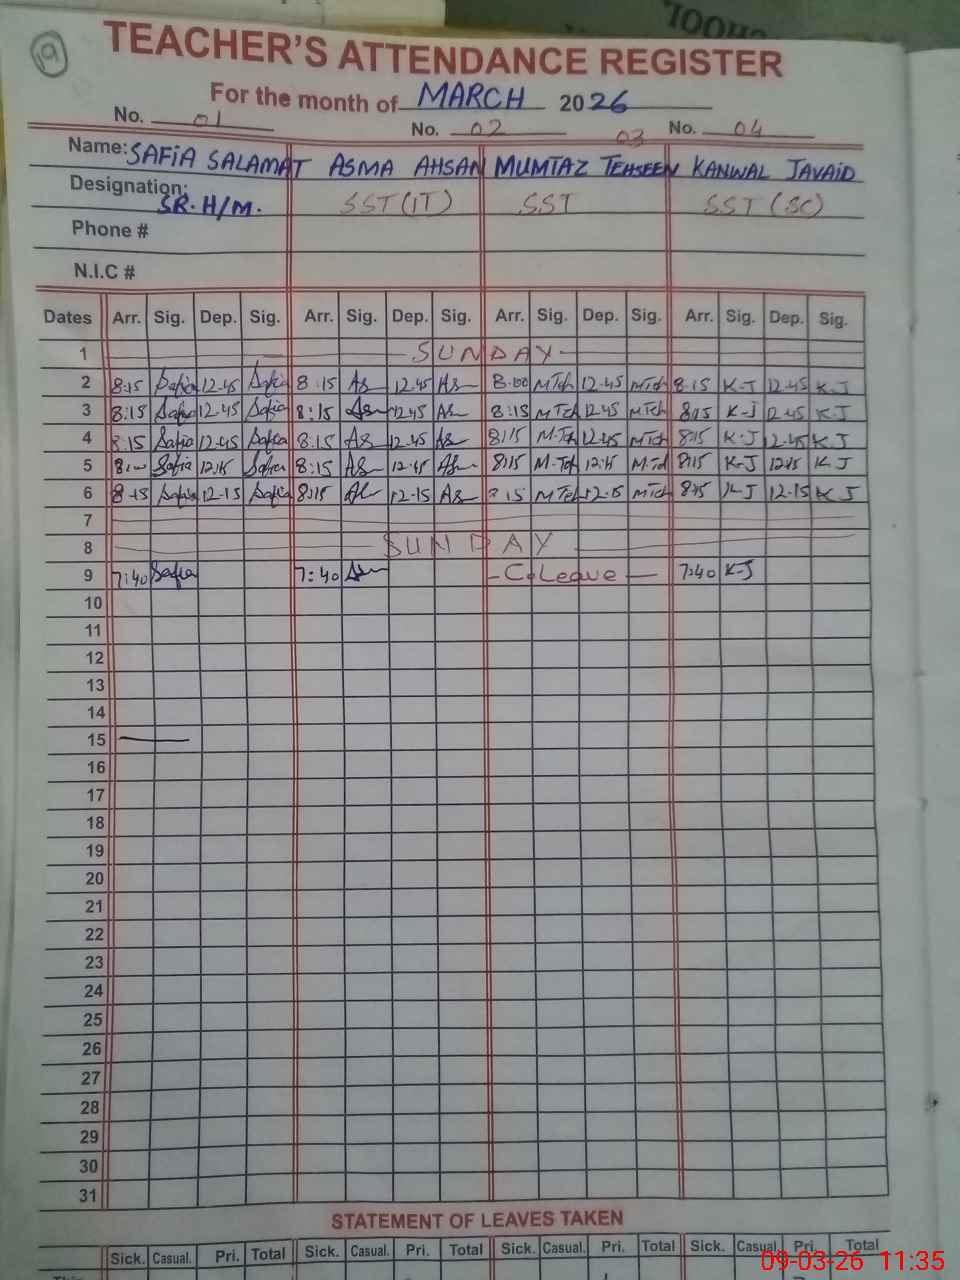 HOOL
19
TEACHER'S ATTENDANCE REGISTER
For the month of MARCH 2026
No. 01 No. 02 03 No. 04
Name: SAFIA SALAMAT ASMA AHSAN MUMTAZ TEHSEEN KANWAL JAVAID
Designation: SR. H/M. SST (IT) SST SST (SC)
Phone #
N.I.C #
Dates Arr. Sig. Dep. Sig. Arr. Sig. Dep. Sig. Arr. Sig. Dep. Sig. Arr. Sig. Dep. Sig.
1 SUNDAY
2 8:15 Safia 12.45 Safia 8:15 As 12.45 As 8.00 MTeh 12.45 MTeh 8.15 K-J 12.45 K-J
3 8:15 Safia 12.45 Safia 8:15 As 12.45 As 8:15 MTeh 12.45 MTeh 8:15 K-J 12.45 K-J
4 8:15 Safia 12.45 Safia 8:15 As 12.45 As 8:15 M.Teh 12.45 MTeh 8:15 K-J 12.45 K J
5 8:00 Safia 12:15 Safia 8:15 As 12.45 As 8:15 M.Teh 12:15 M.Teh 8:15 K-J 12:15 K J
6 8.15 Safia 12-15 Safia 8:15 As 12-15 As 15 MTeh 12.15 MTeh 8:15 K-J 12-15 K J
7
8 SUNDAY
9 7:40 Safia 7:40 As - C. Leave - 7:40 K-J
10
11
12
13
14
15
16
17
18
19
20
21
22
23
24
25
26
27
28
29
30
31
STATEMENT OF LEAVES TAKEN
Sick. Casual. Pri. Total Sick. Casual. Pri. Total Sick. Casual. Pri. Total Sick. Casual Pri. Total
This
09-03-26 11:35